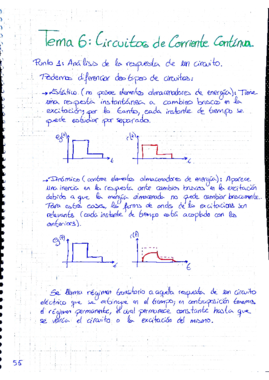 Tema 6: Circuitos de Corriente Continua.
Punto 1: Análisis de la respuesta de un circuito.
Podemos diferenciar dos tipos de circuitos:
→ Estático (no posee elementos almacenadores de energía): Tiene
una respuesta instantánea a cambios bruscos en la
excitación; por lo tanto, cada instante de tiempo se
puede estudiar por separado.
e(t) r(t)
t t
→ Dinámico (contiene elementos almacenadores de energía): Aparece
una inercia en la respuesta ante cambios bruscos en la excitación
debido a que la energía almacenada no puede cambiar bruscamente.
Para estos casos, las formas de onda de las excitaciones son
relevantes (cada instante de tiempo está acoplado con los
anteriores).
e(t) r(t)
t t
Se llama régimen transitorio a aquella respuesta de un circuito
eléctrico que se extingue en el tiempo; en contraposición tenemos
el régimen permanente, el cual permanece constante hasta que
se varía el circuito o la excitación del mismo.
55